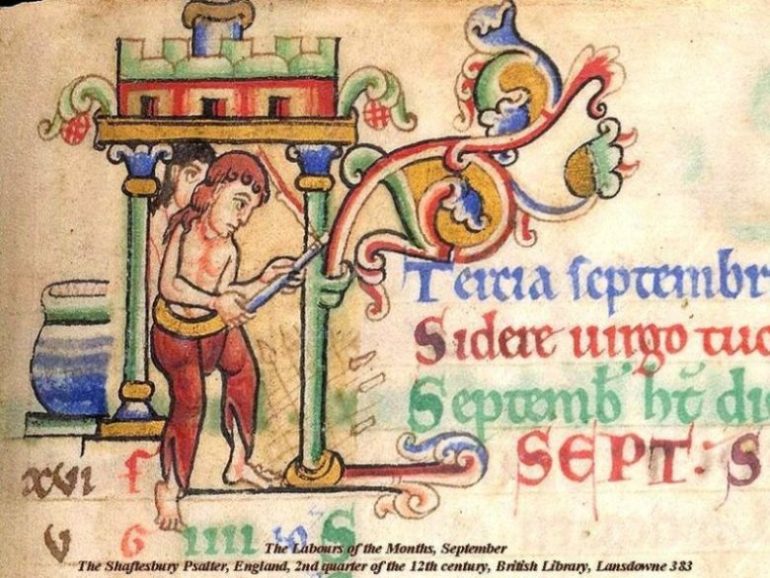 Tercia septembr
Sidere uirgo tuo
Septemb' ht̄ di
SEPT: S
XVI f
V G IIII S
The Labours of the Months, September
The Shaftesbury Psalter, England, 2nd quarter of the 12th century, British Library, Lansdowne 383